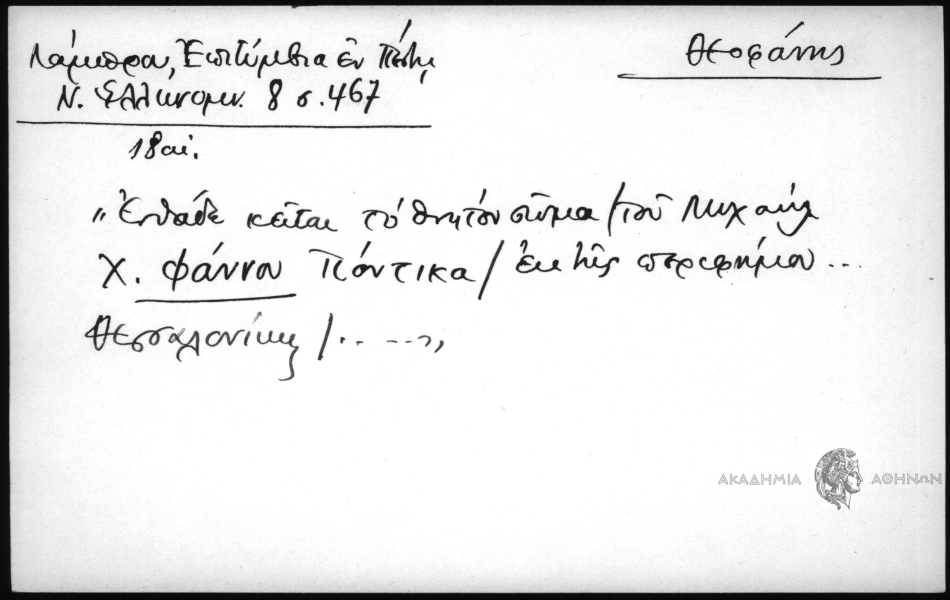 Λάμπρου, Ἐπιτύμβια ἐν Πέστῃ
Ν. Ἑλληνομν. 8 σ. 467
Θεοφάνης
18 αἰ.
"Ἐνθάδε κεῖται τὸ θνητόν σῶμα / τοῦ Μιχαήλ
Χ. Φάννου Πόντικα / ἐκ τῆς περιφήμου ...
Θεσσαλονίκης / ......"
ΑΚΑΔΗΜΙΑ ΑΘΗΝΩΝ